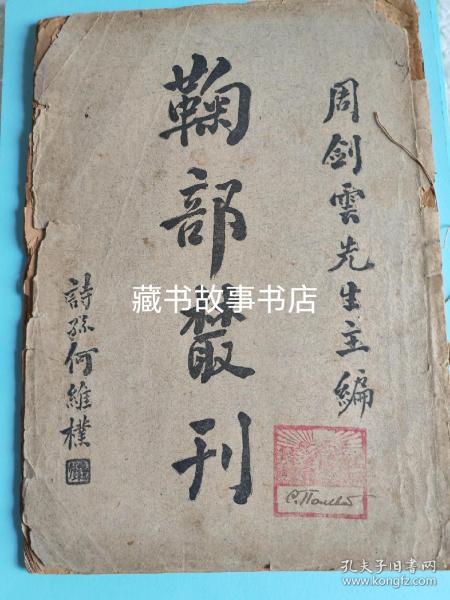 周剑雲先生主編
鞠部叢刊
詩孫何維樸
藏书故事书店
孔夫子旧书网
www.kongfz.com